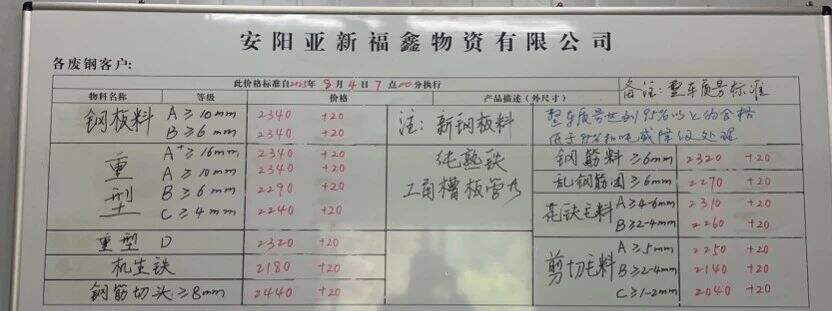 安阳亚新福鑫物资有限公司
各废钢客户:
此价格标准自2025年8月4日7点00分执行
备注: 整车质号标准
物料名称 等级 价格 产品描述(外尺寸)
钢板料 A≥10mm 2340 +20
B≥6mm 2340 +20
重型 A+≥16mm 2340 +20
A≥10mm 2340 +20
B≥6mm 2290 +20
C≥4mm 2240 +20
重型 D 2320 +20
机生铁 2180 +20
钢筋切头≥8mm 2440 +20
注: 新钢板料
纯熟铁
工角槽板管
整车质号达到95%以上为合格
低于95%扣吨或降级处理
钢筋料≥6mm 2320 +20
乱钢筋团≥6mm 2270 +20
花铁毛料 A≥4-6mm 2310 +20
B≥2-4mm 2260 +20
剪切毛料 A≥5mm 2250 +20
B≥2-4mm 2140 +20
C≥1-2mm 2040 +20